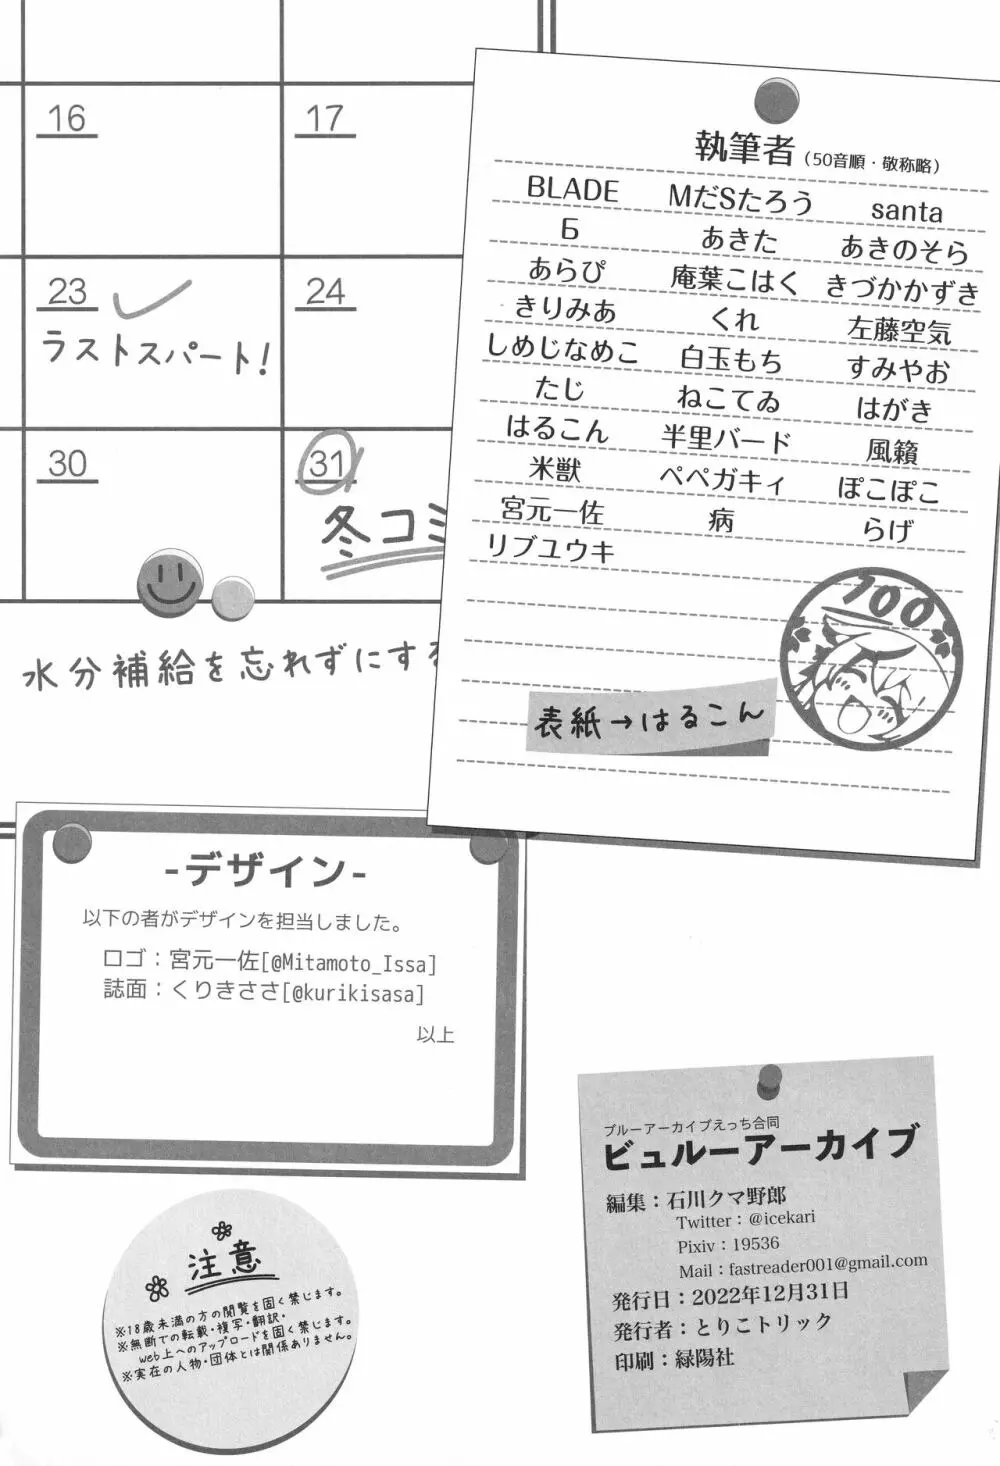 16
17
23
24
ラストスパート!
30
31
冬コミ
水分補給を忘れずにする
執筆者 (50音順・敬称略)
BLADE MだSたろう santa
Б あきた あきのそら
あらぴ 庵葉こはく きづかかずき
きりみあ くれ 左藤空気
しめじなめこ 白玉もち すみやお
たじ ねこてゐ はがき
はるこん 半里バード 風籟
米獣 ペペガキィ ぽこぽこ
宮元一佐 病 らげ
リブユウキ
100
表紙→はるこん
-デザイン-
以下の者がデザインを担当しました。
ロゴ：宮元一佐[@Mitamoto_Issa]
誌面：くりきささ[@kurikisasa]
以上
注意
※18歳未満の方の閲覧を固く禁じます。
※無断での転載・複写・翻訳・
web上へのアップロードを固く禁じます。
※実在の人物・団体とは関係ありません。
ブルーアーカイブえっち合同
ビュルーアーカイブ
編集：石川クマ野郎
Twitter：@icekari
Pixiv：19536
Mail：fastreader001@gmail.com
発行日：2022年12月31日
発行者：とりこトリック
印刷：緑陽社